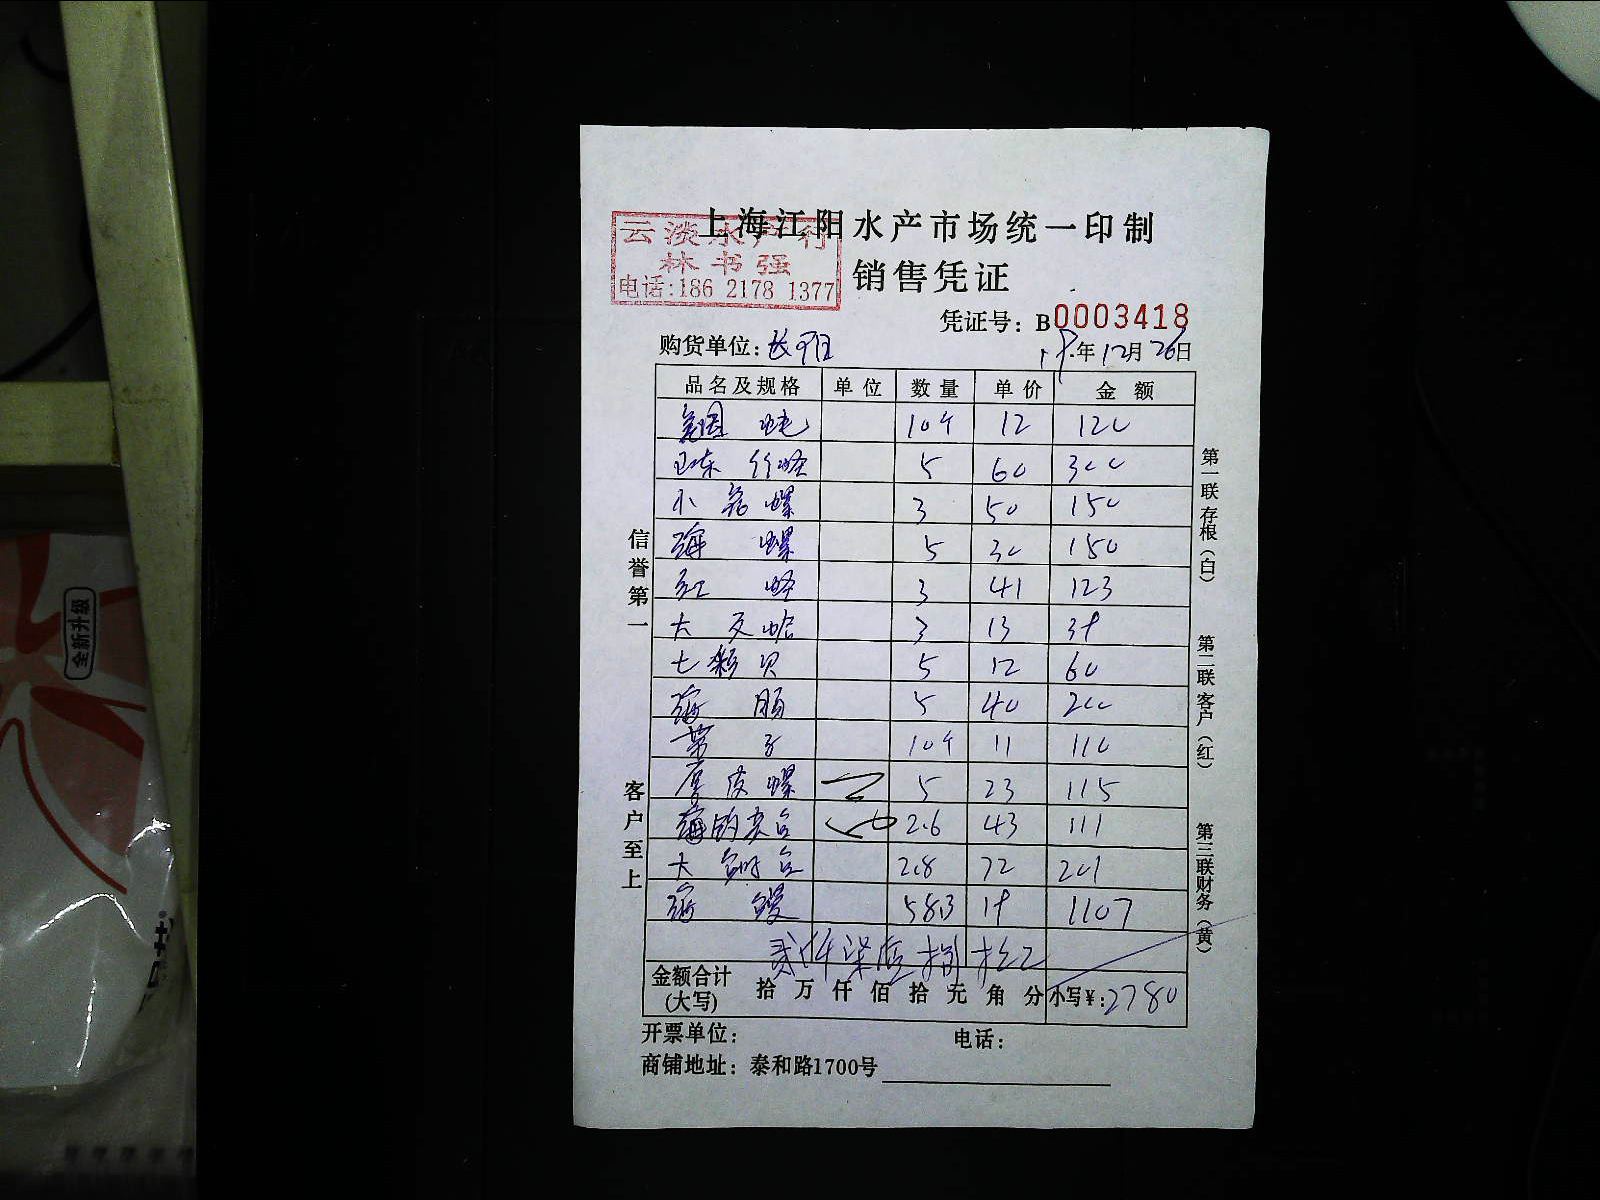 上海江阳水产市场统一印制
云淡水产行
林书强
电话:186 2178 1377
销售凭证
凭证号: B0003418
购货单位: 长阳
19年12月26日
品名及规格 单位 数量 单价 金额
美国 蚝 10个 12 120
山东 竹蛏 5 60 300
小花螺 3 50 150
海 螺 5 30 150
红 蛏 3 41 123
大 文蛤 3 13 39
七彩贝 5 12 60
海 肠 5 40 200
10个 11 110
螺 5 23 115
2.6 43 111
大 2.8 72 201
海 鳗 58.3 19 1107
贰仟柒佰捌拾元
金额合计(大写) 拾 万 仟 佰 拾 元 角 分 小写¥: 2780
开票单位: 电话:
商铺地址: 泰和路1700号
信誉第一
客户至上
第一联存根(白)
第二联客户(红)
第三联财务(黄)
全新升级